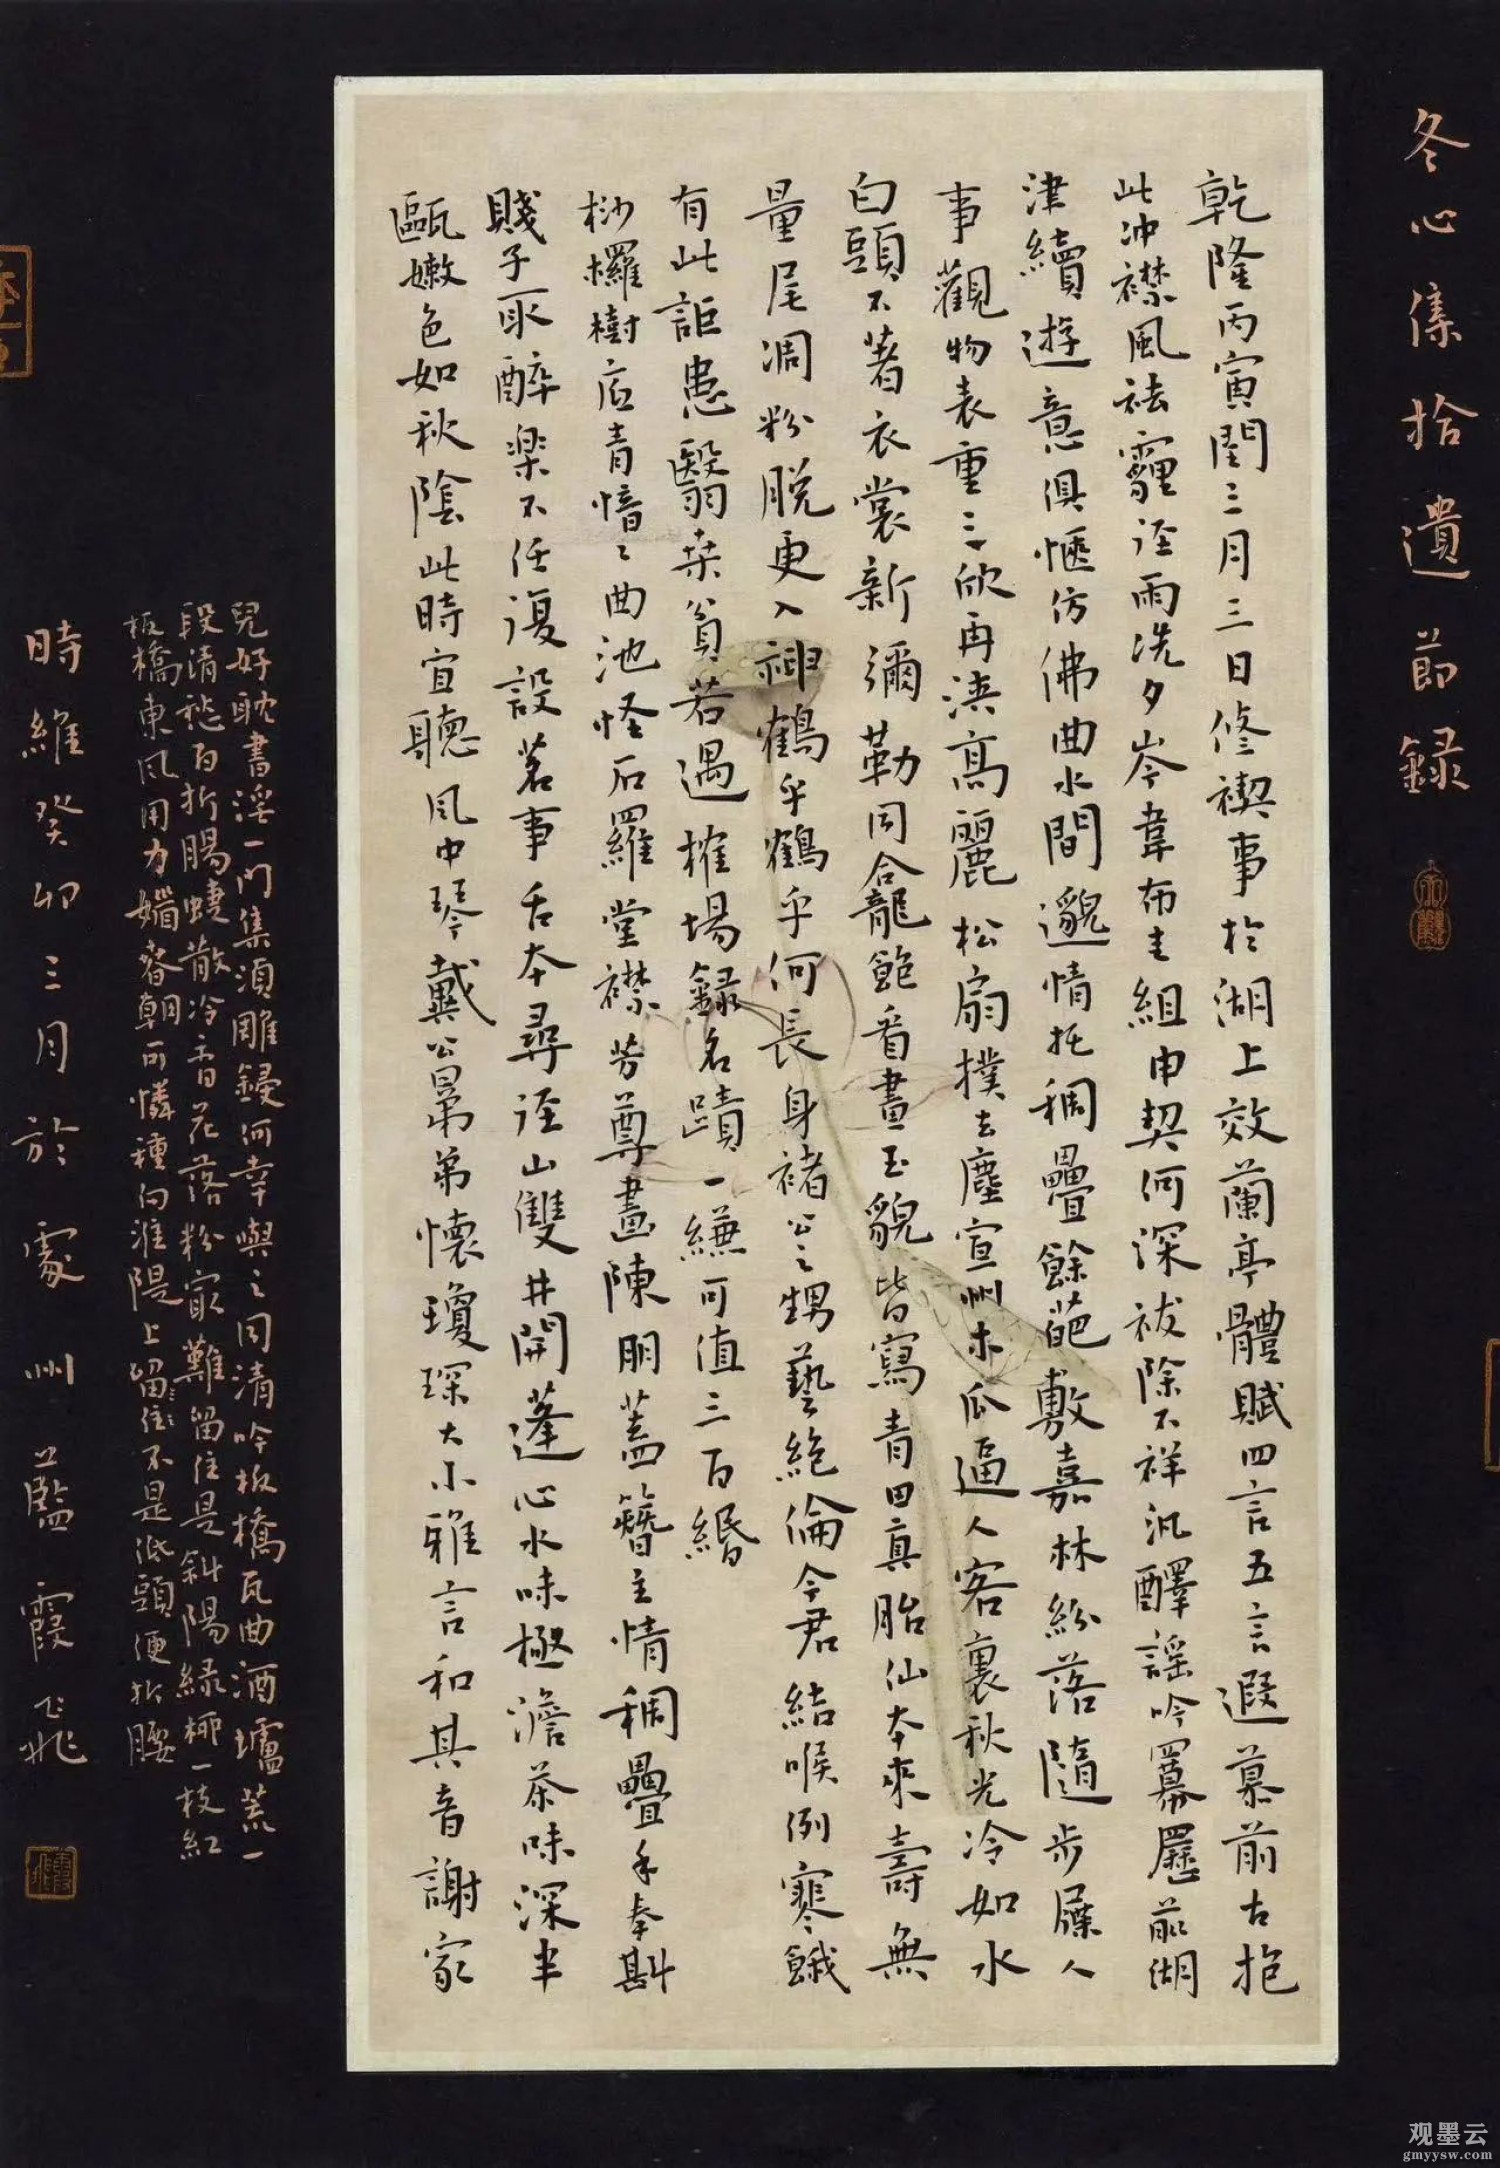 冬心集拾遺節録
乾隆丙寅閏三月三日修禊事於湖上效蘭亭體賦四言五言遐慕前古抱
此沖襟風祛霾淫雨洗夕岑韋布圭組申契何深祓除不祥汎醳謡吟羃䍥前湖
津續遊意俱愜仿佛曲水間邈情抂稠疊餘葩敷嘉林紛落隨步屧人
事觀物表重三欣再浹高麗松扇撲去塵宣州木瓜逼人客裏秋光冷如水
白頭不著衣裳新彌勒同龕飽看畫玉貌皆寫青田真胎仙本來壽無
量尾凋粉脱更入神鶴乎鶴乎何長身褚公之甥藝絶倫今君結喉例寒餓
有此詎患翳桑貧若遇榷場録名蹟一縑可值三百緡
桫欏樹底青愔愔曲池怪石羅堂襟芳尊畫陳朋盍簪主情稠疊手奉斟
賤子取醉樂不任復設茗事舌本尋淫山雙井開蓬心水味極澹茶味深半
甌嫩色如秋陰此時宜聽風中琴戴公昴弟懷瓊琛大小雅言和其音謝家
兒好耽書淫一門集須雕鋟何幸與之同清吟板橋瓦曲酒壚荒一
段清愁百折腸蜨散冷香花落粉最難留住是斜陽緑柳一枝紅
板橋東風用力媚春朝可憐種向淮隄上留住不是低頭便折腰
時維癸卯三月於處州藍霞飛
观墨云
gmyysw.com